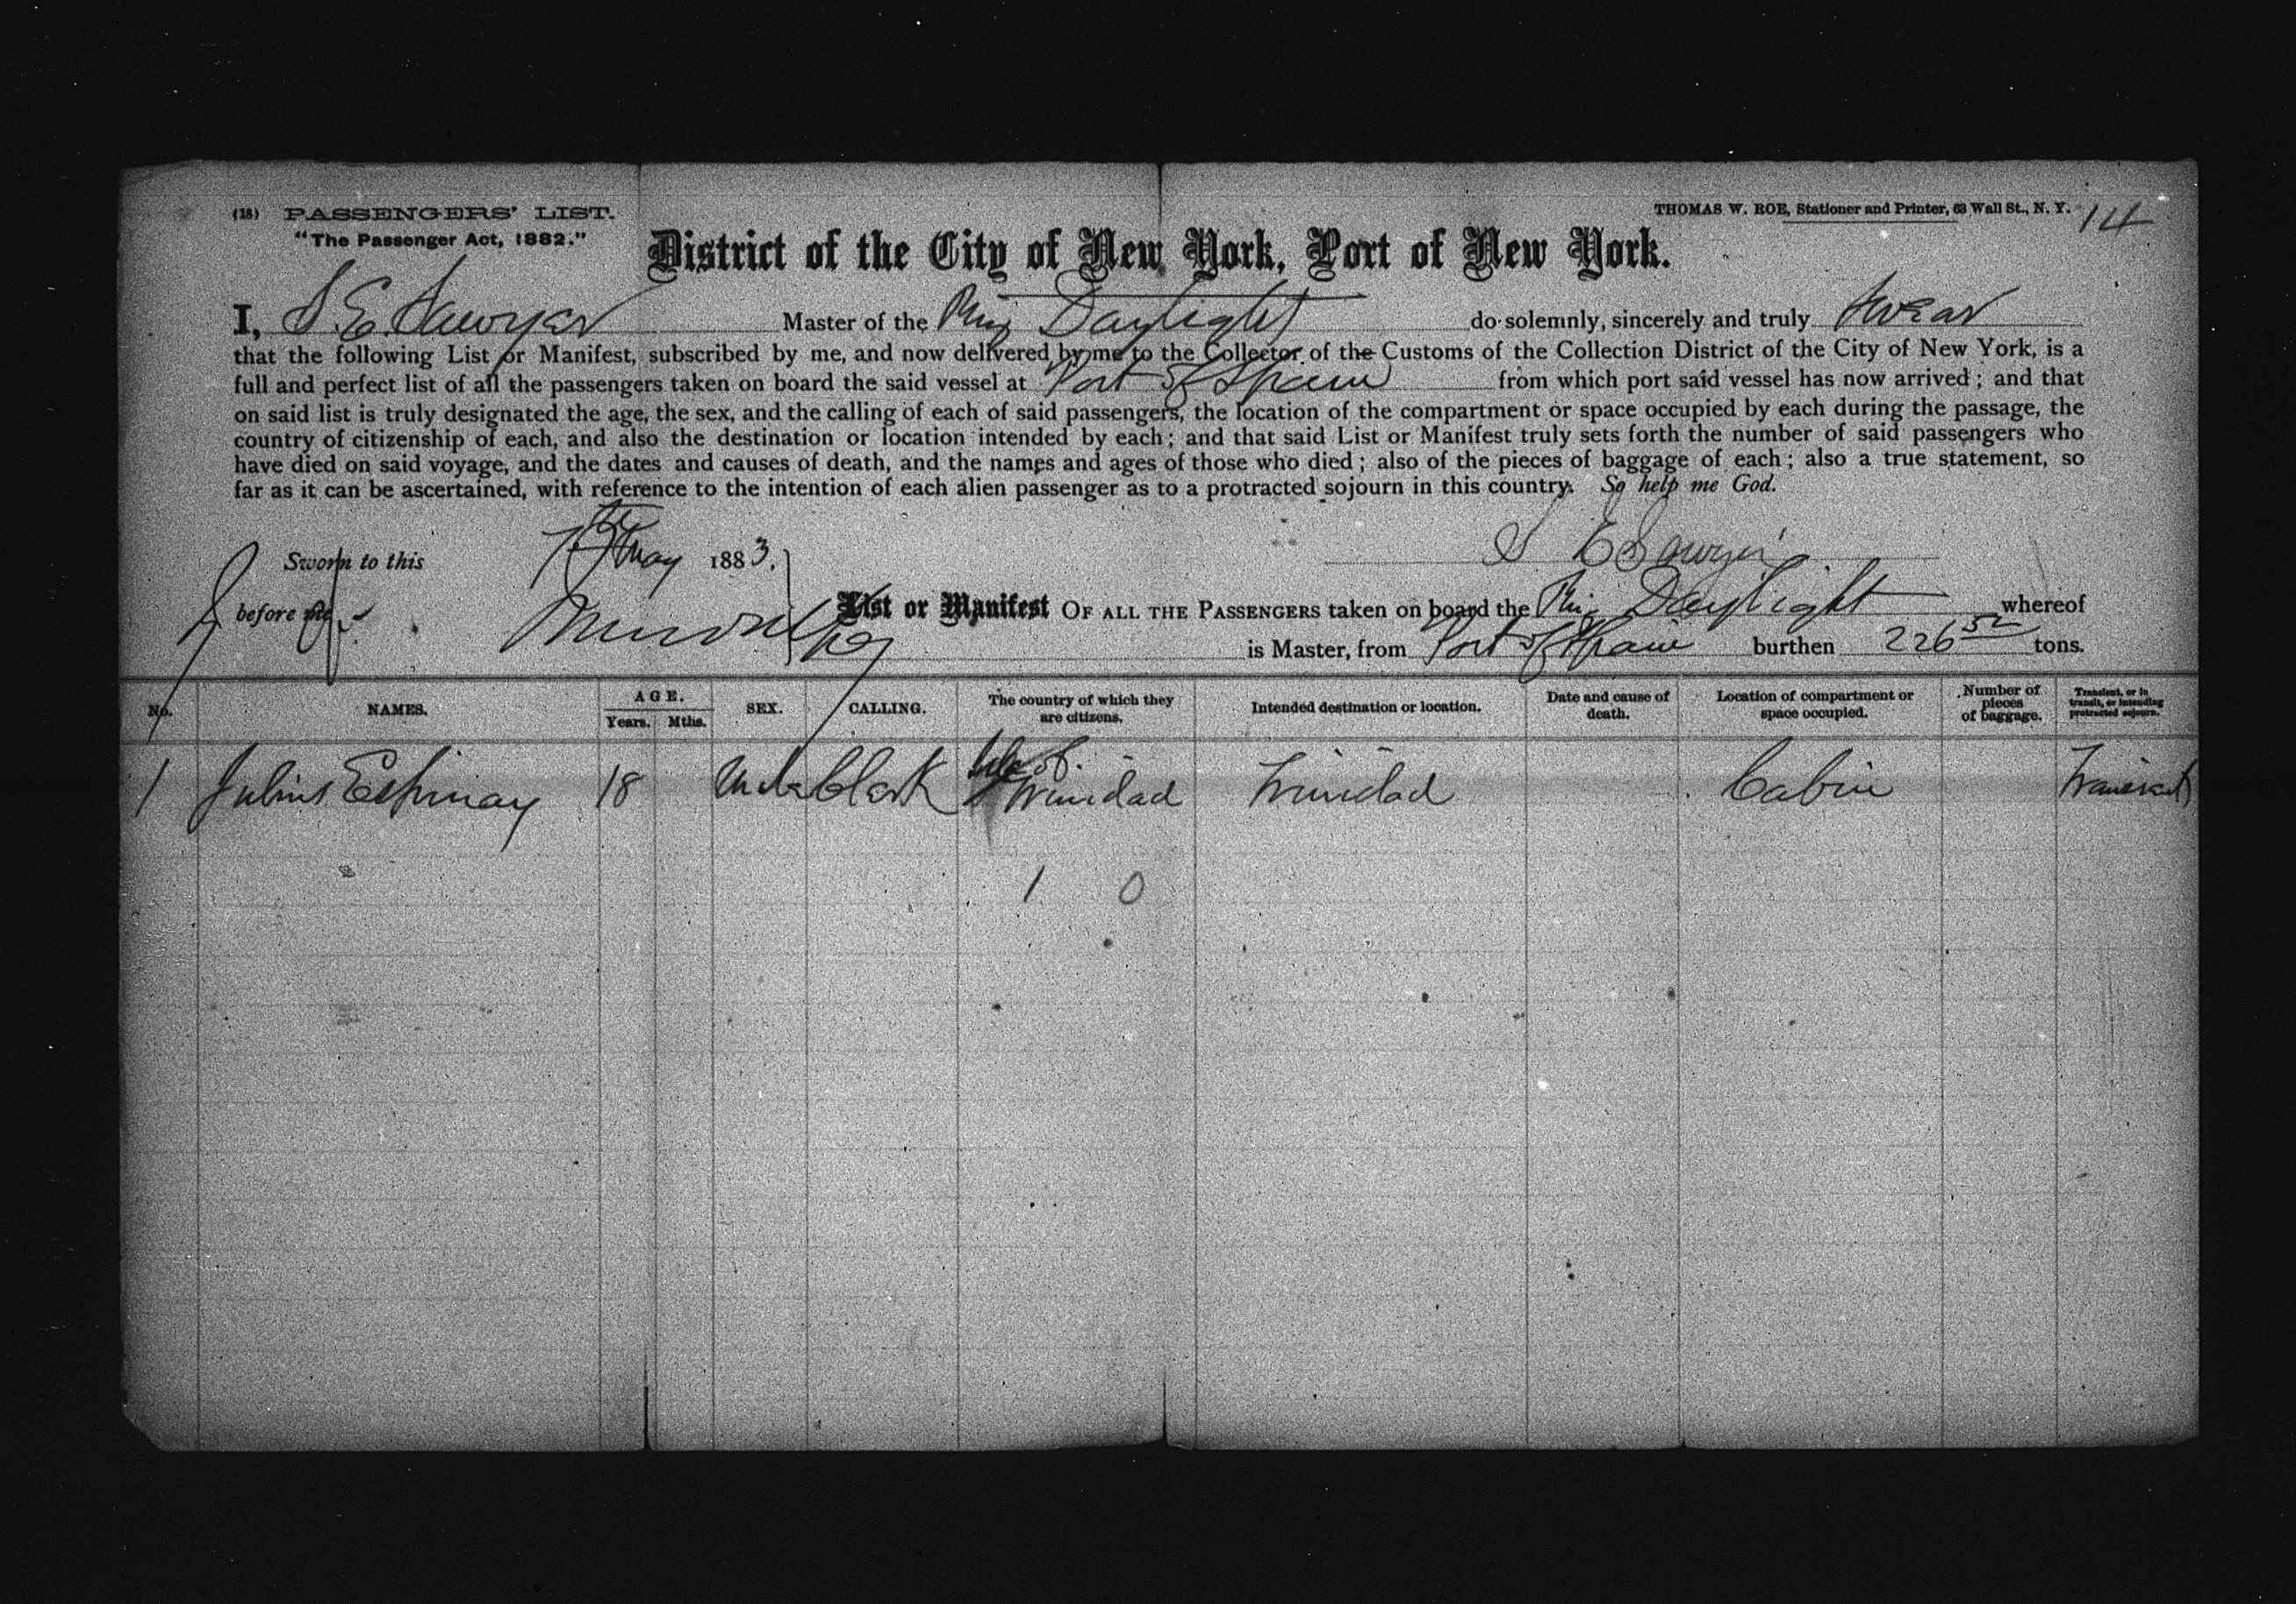 (18) PASSENGERS' LIST.
"The Passenger Act, 1882."
THOMAS W. ROE, Stationer and Printer, 63 Wall St., N. Y.
14
District of the City of New York, Port of New York.
I, S. E. Sawyer Master of the Daylight do solemnly, sincerely and truly swear
that the following List or Manifest, subscribed by me, and now delivered by me to the Collector of the Customs of the Collection District of the City of New York, is a
full and perfect list of all the passengers taken on board the said vessel at Port of Spain from which port said vessel has now arrived; and that
on said list is truly designated the age, the sex, and the calling of each of said passengers, the location of the compartment or space occupied by each during the passage, the
country of citizenship of each, and also the destination or location intended by each; and that said List or Manifest truly sets forth the number of said passengers who
have died on said voyage, and the dates and causes of death, and the names and ages of those who died; also of the pieces of baggage of each; also a true statement, so
far as it can be ascertained, with reference to the intention of each alien passenger as to a protracted sojourn in this country. So help me God.
Sworn to this May 1883.
S E Sawyer
before me
List or Manifest OF ALL THE PASSENGERS taken on board the Daylight whereof
is Master, from Port of Spain burthen 226 52 tons.
No. NAMES. AGE. Years. Mths. SEX. CALLING. The country of which they are citizens. Intended destination or location. Date and cause of death. Location of compartment or space occupied. Number of pieces of baggage. Transient, or in transit, or intending protracted sojourn.
1 Julius Espinay 18 Male Clark Isle of Trinidad Trinidad Cabin Transient
1 0